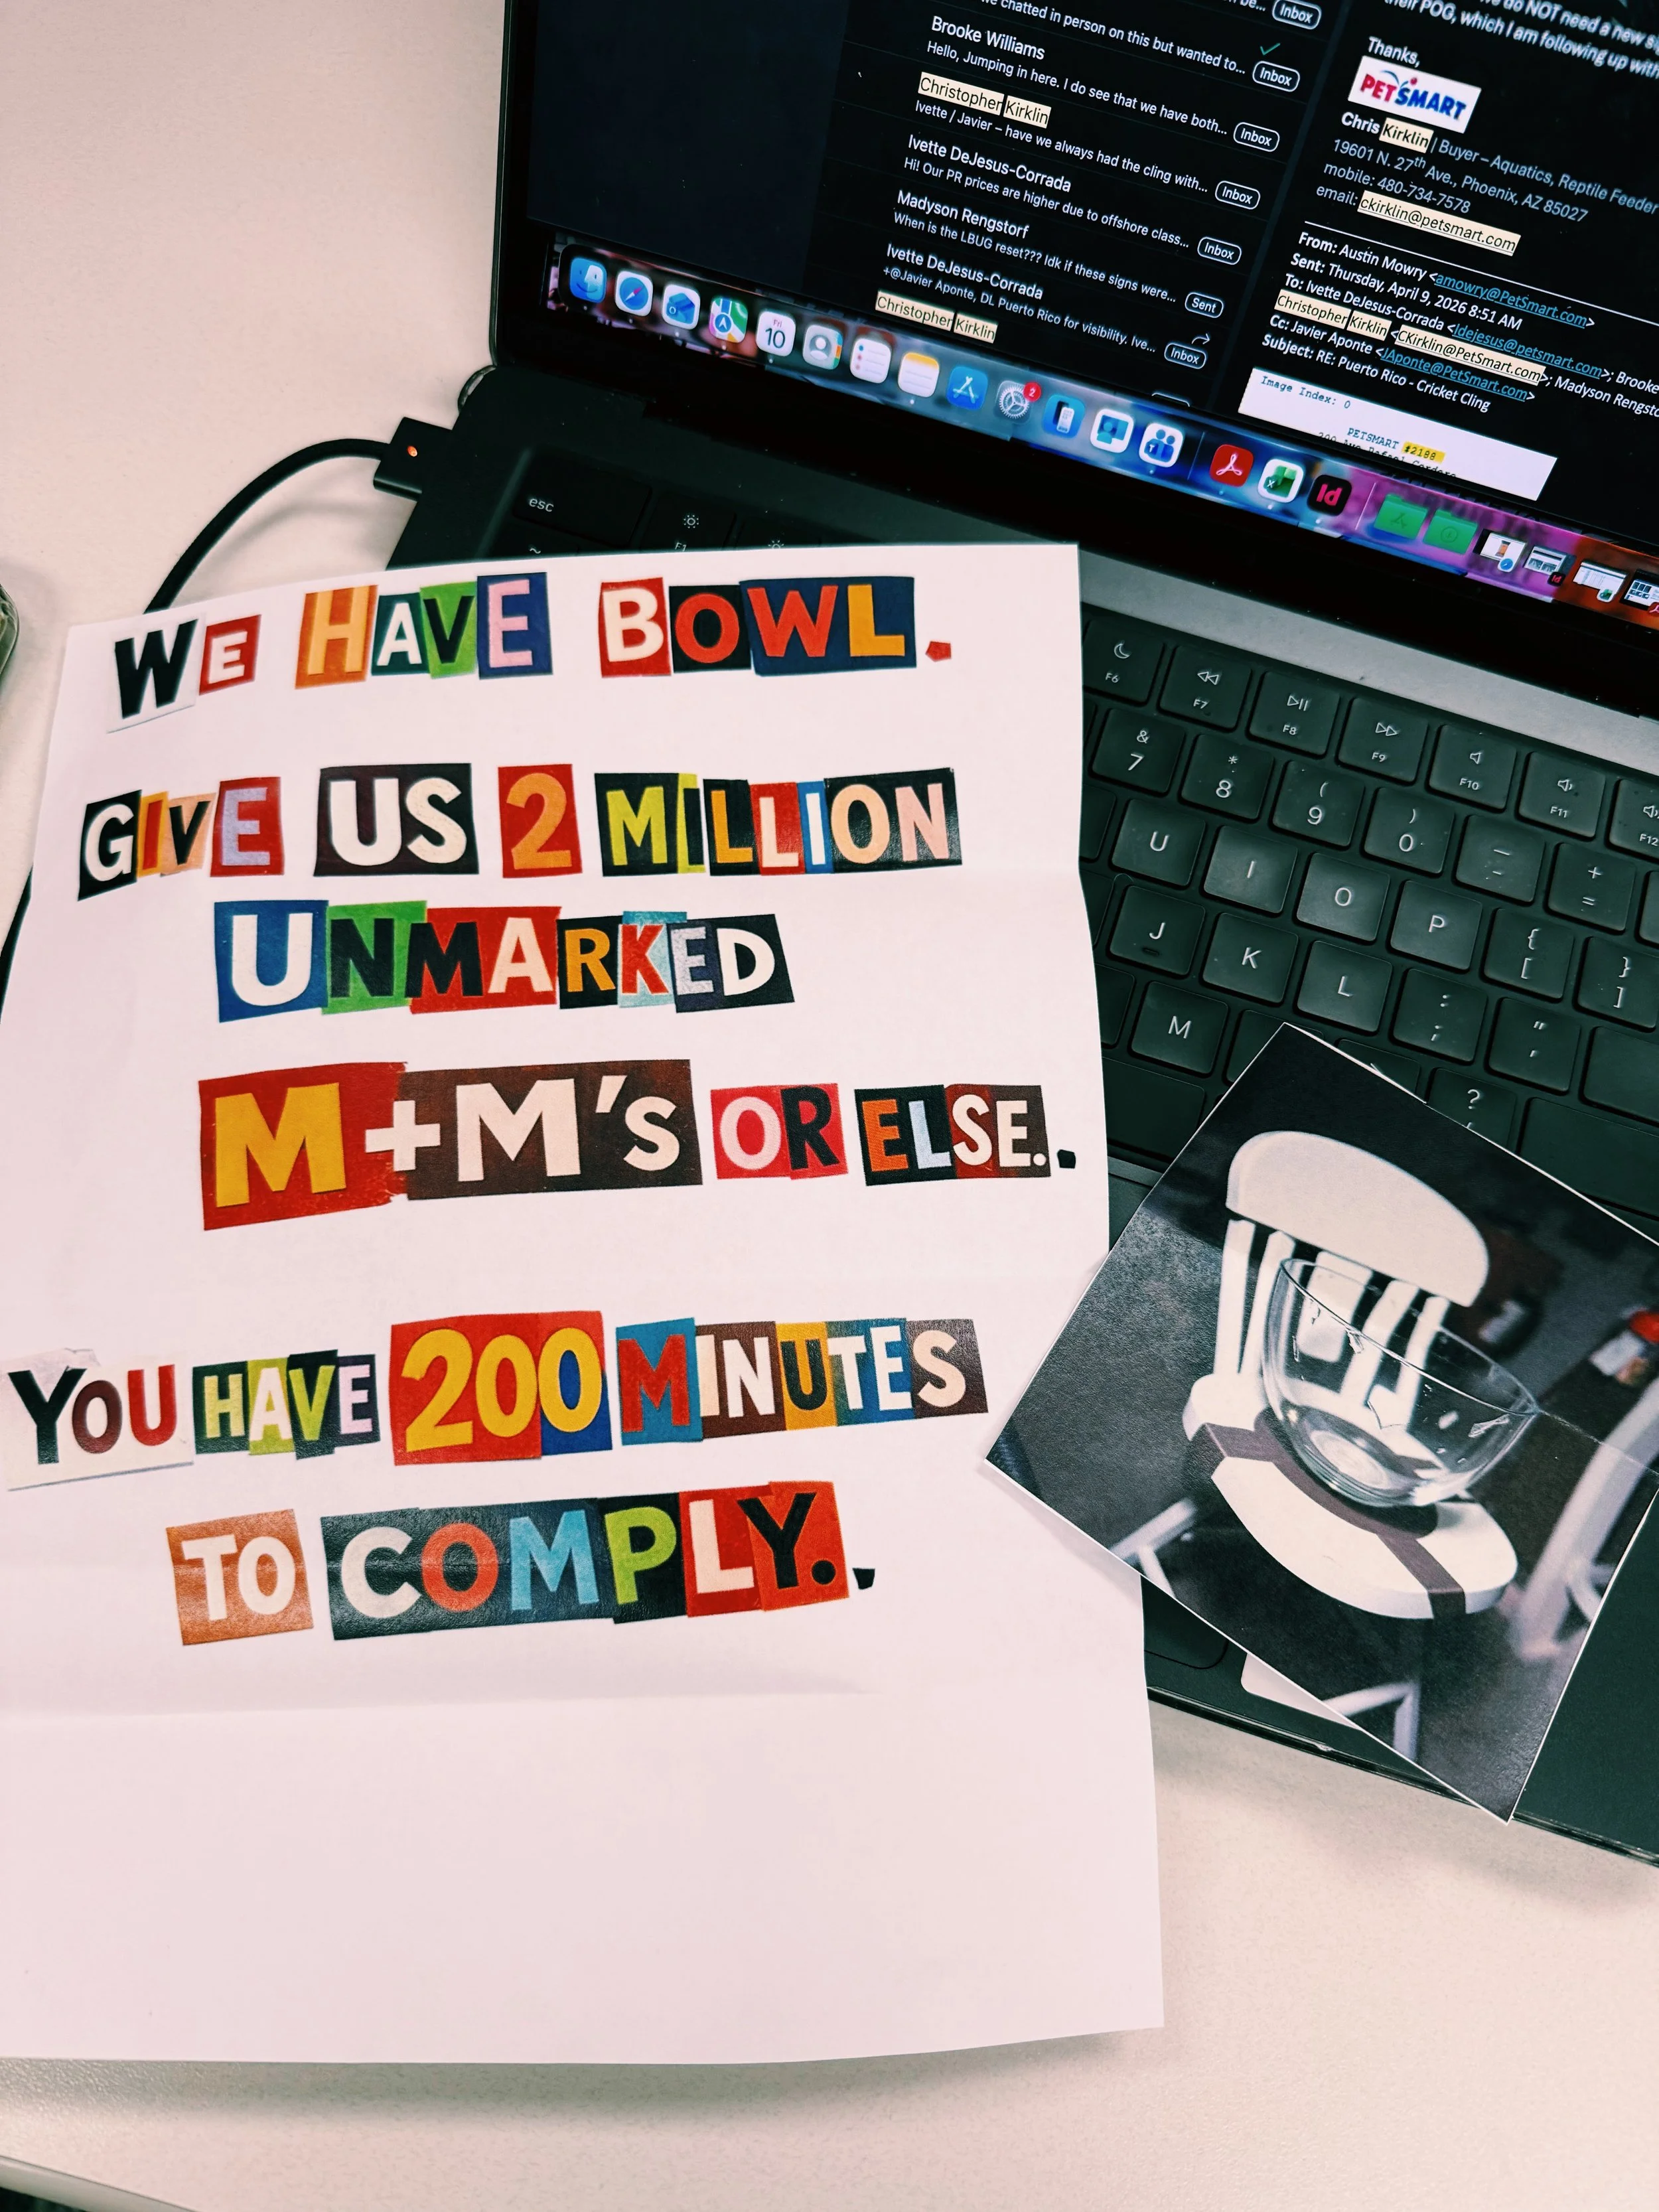 we chatted in person on this but wanted to...
Inbox
Inbox
Brooke Williams
Hello, Jumping in here. I do see that we have both...
Inbox
Christopher Kirklin
Ivette / Javier – have we always had the cling with...
Inbox
Ivette DeJesus-Corrada
Hi! Our PR prices are higher due to offshore class...
Inbox
Madyson Rengstorf
When is the LBUG reset??? Idk if these signs were...
Sent
Ivette DeJesus-Corrada
+@Javier Aponte, DL Puerto Rico for visibility. Ive...
Inbox
Christopher Kirklin
do NOT need a new
their POG, which I am following up with
Thanks,
PETSMART
Chris Kirklin | Buyer – Aquatics, Reptile Feeder
19601 N. 27th Ave., Phoenix, AZ 85027
mobile: 480-734-7578
email: ckirklin@petsmart.com
From: Austin Mowry <amowry@PetSmart.com>
Sent: Thursday, April 9, 2026 8:51 AM
To: Ivette DeJesus-Corrada <Idejesus@petsmart.com>; Brooke
Christopher Kirklin <CKirklin@PetSmart.com>; Madyson Rengsto
Cc: Javier Aponte <JAponte@PetSmart.com>
Subject: RE: Puerto Rico - Cricket Cling
Image Index: 0
PETSMART #2188
Fri
10
2
Id
esc
~
F1
F6
F7
F8
F9
F10
F11
F12
& 7
* 8
( 9
) 0
— -
+ =
U
I
O
P
{ [
} ]
J
K
L
: ;
" '
M
? /
WE HAVE BOWL.
GIVE US 2 MILLION
UNMARKED
M+M'S OR ELSE..
YOU HAVE 200 MINUTES
TO COMPLY..